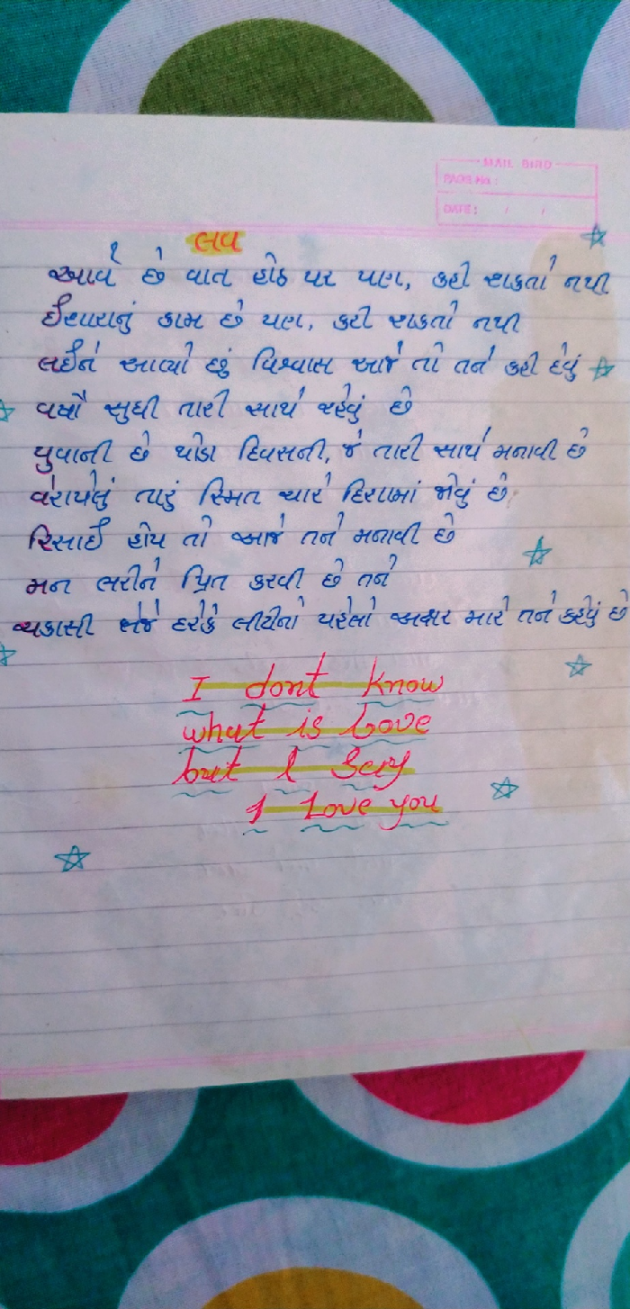 MAIL BIRD
PAGE No. :
DATE : / /
લવ
આવે છે વાત હોઠ પર પણ, કહી શકતો નથી
ઈશારાનું કામ છે પણ, કરી શકતો નથી
લઈને આવ્યો છું વિશ્વાસ આજે તો તને કહી દેવું
વર્ષો સુધી તારી સાથે રહેવું છે
યુવાની છે થોડા દિવસની, જે તારી સાથે મનાવી છે
વેરાયેલું તારું સ્મિત ચારે દિશામાં જોવું છે
રિસાઈ હોય તો આજે તને મનાવી છે
મન ભરીને પ્રિત કરવી છે તને
ચકાસી લેજે દરેક લીટીનો પહેલો અક્ષર મારે તને કહેવું છે
I dont know
what is Love
but I Sey
I Love you